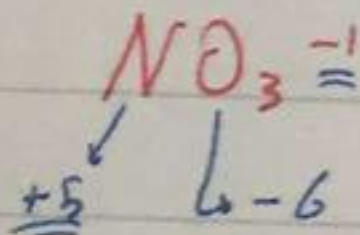 NO₃ -1
+5 -6